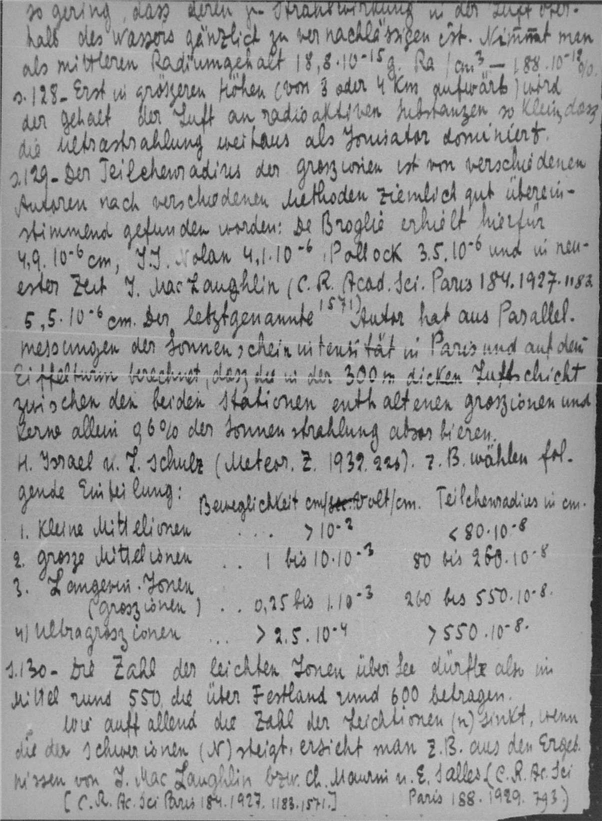 so gering, dass deren γ-Strahlwirkung in der Luft ober-
halb des Wassers gänzlich zu vernachlässigen ist. Nimmt man
als mittleren Radiumgehalt 18,8·10⁻¹⁵ g. Ra/cm³ – 1,88·10⁻¹²%.
s.128– Erst in grösseren Höhen (von 3 oder 4 Km aufwärts) wird
der gehalt der Luft an radioaktiven substanzen so klein, dasz
die Ultrastrahlung weithaus als Jonisator dominiert.
s.129– Der Teilchenradius der groszionen ist von verschiedenen
Autoren nach verschiedenen Methoden ziemlich gut überein-
stimmend gefunden worden: De Broglie erhielt hierfür
4,9·10⁻⁶ cm, J.J. Nolan 4,1·10⁻⁶, Pollock 3.5.10⁻⁶ und in neu-
ester Zeit J. Mac Laughlin (C.R. Acad. Sci. Paris 184.1927.1183
1571) 5,5·10⁻⁶ cm. Der letztgenannte Autor hat aus Parallel-
messungen der Sonnenscheinintensität in Paris und auf dem
Eiffelturm berechnet, dasz die in der 300 m dicken Luftschicht
zwischen den beiden Stationen enthaltenen groszionen und
Kerne allein 96% der Sonnenstrahlung absorbieren.
H. Israel u. L. Schulz (Meteor. Z. 1932.226). z.B. wählen fol-
gende Einteilung: Beweglichkeit cm/sec. Volt/cm. Teilchenradius in cm.
1. Kleine Mittelionen .... >10⁻² <80·10⁻⁸
2. grosze Mittelionen .. 1 bis 10·10⁻³ 80 bis 260·10⁻⁸
3. Langevin-Jonen
(groszionen) .. 0,25 bis 1.10⁻³ 260 bis 550·10⁻⁸
4) Ultragroszionen ... > 2,5.10⁻⁴ >550·10⁻⁸.
s.130– Die Zahl der leichten Jonen über See dürfte also im
Mittel rund 550, die über Festland rund 600 betragen.
Wie auffallend die Zahl der Leichtionen (n) sinkt, wenn
die der Schwerionen (N) steigt, ersieht man z.B. aus den Ergeb-
nissen von J. Mac Laughlin bzw. Ch. Maurin u. E. Salles. (C.R. Ac. Sci
[C.R. Ac. Sci Paris 184.1927. 1183.1571.] Paris 188.1929. 793)